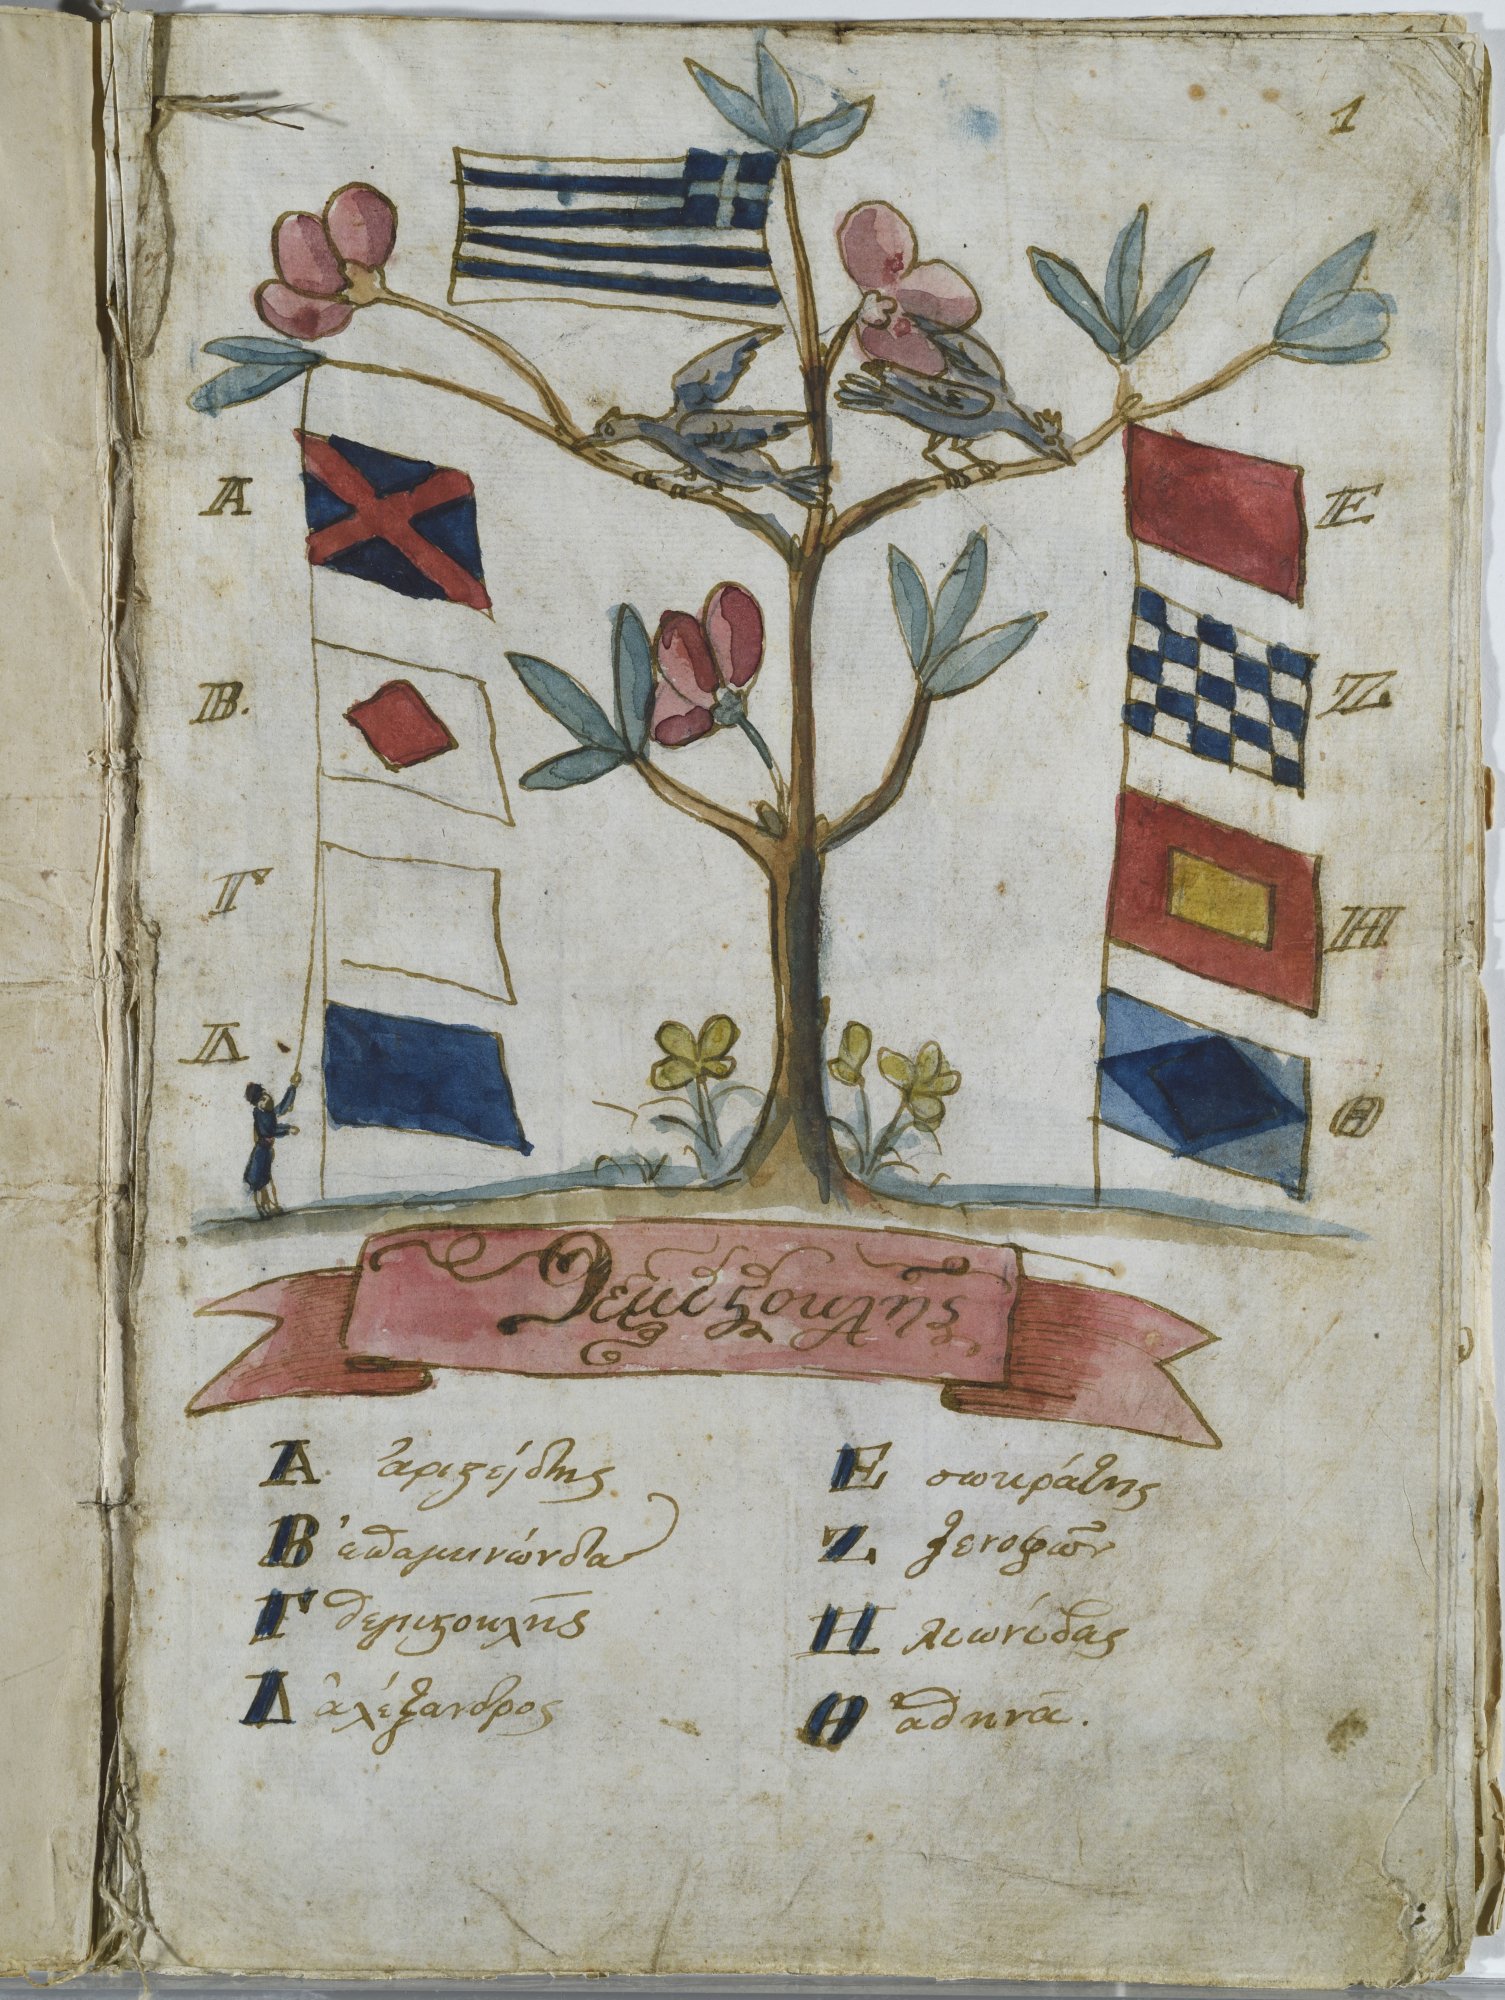 1
Α
Β.
Γ
Δ
Ε
Ζ
Η
Θ
Θεμιστοκλῆς
Α ἀριστείδης
Β ἐπαμινώνδα
Γ θεμιστοκλῆς
Δ ἀλέξανδρος
Ε σωκράτης
Ζ ξενοφῶν
Η λεωνίδας
Θ ἀθηνᾶ.